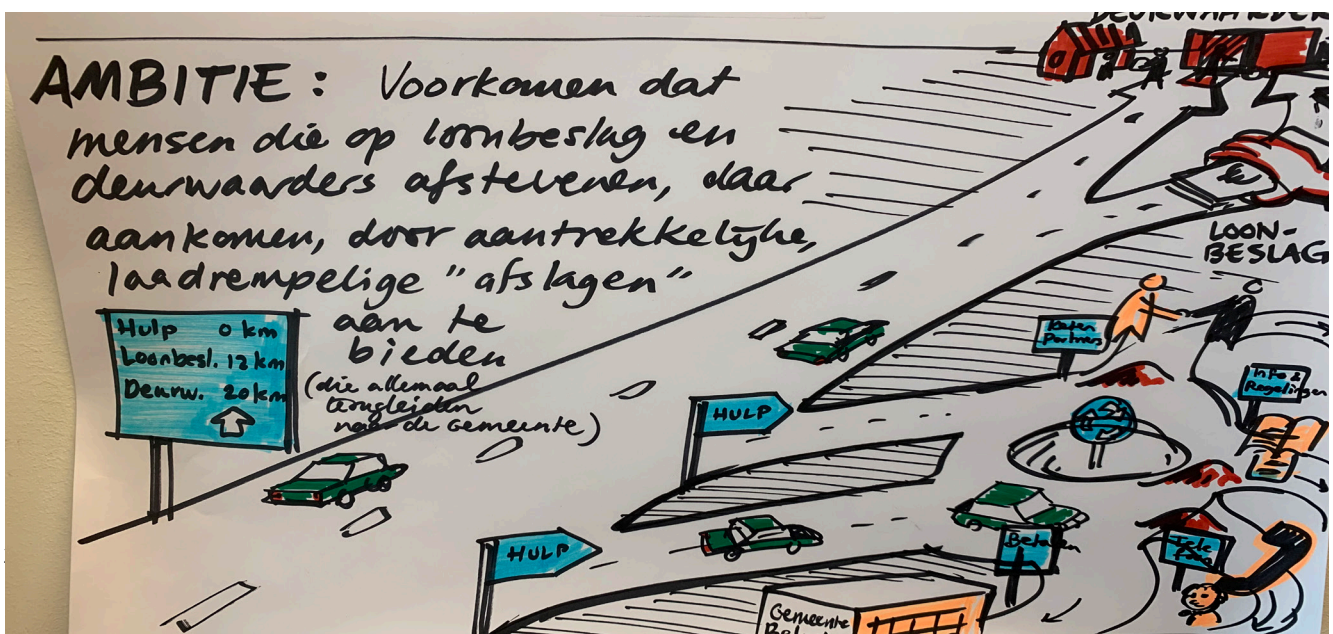 DEURWAARDER
AMBITIE: Voorkomen dat
mensen die op loonbeslag en
deurwaarders afstevenen, daar
aankomen, door aantrekkelijke,
laadrempelige "afslagen"
aan te
bieden
(die allemaal
terugleiden
naar de Gemeente)
Hulp 0 km
Loonbesl. 12 km
Deurw. 20 km
LOON-
BESLAG
Keten
Partners
Info &
Regelingen
HULP
HULP
Betalen
Tele
foon
Gemeente